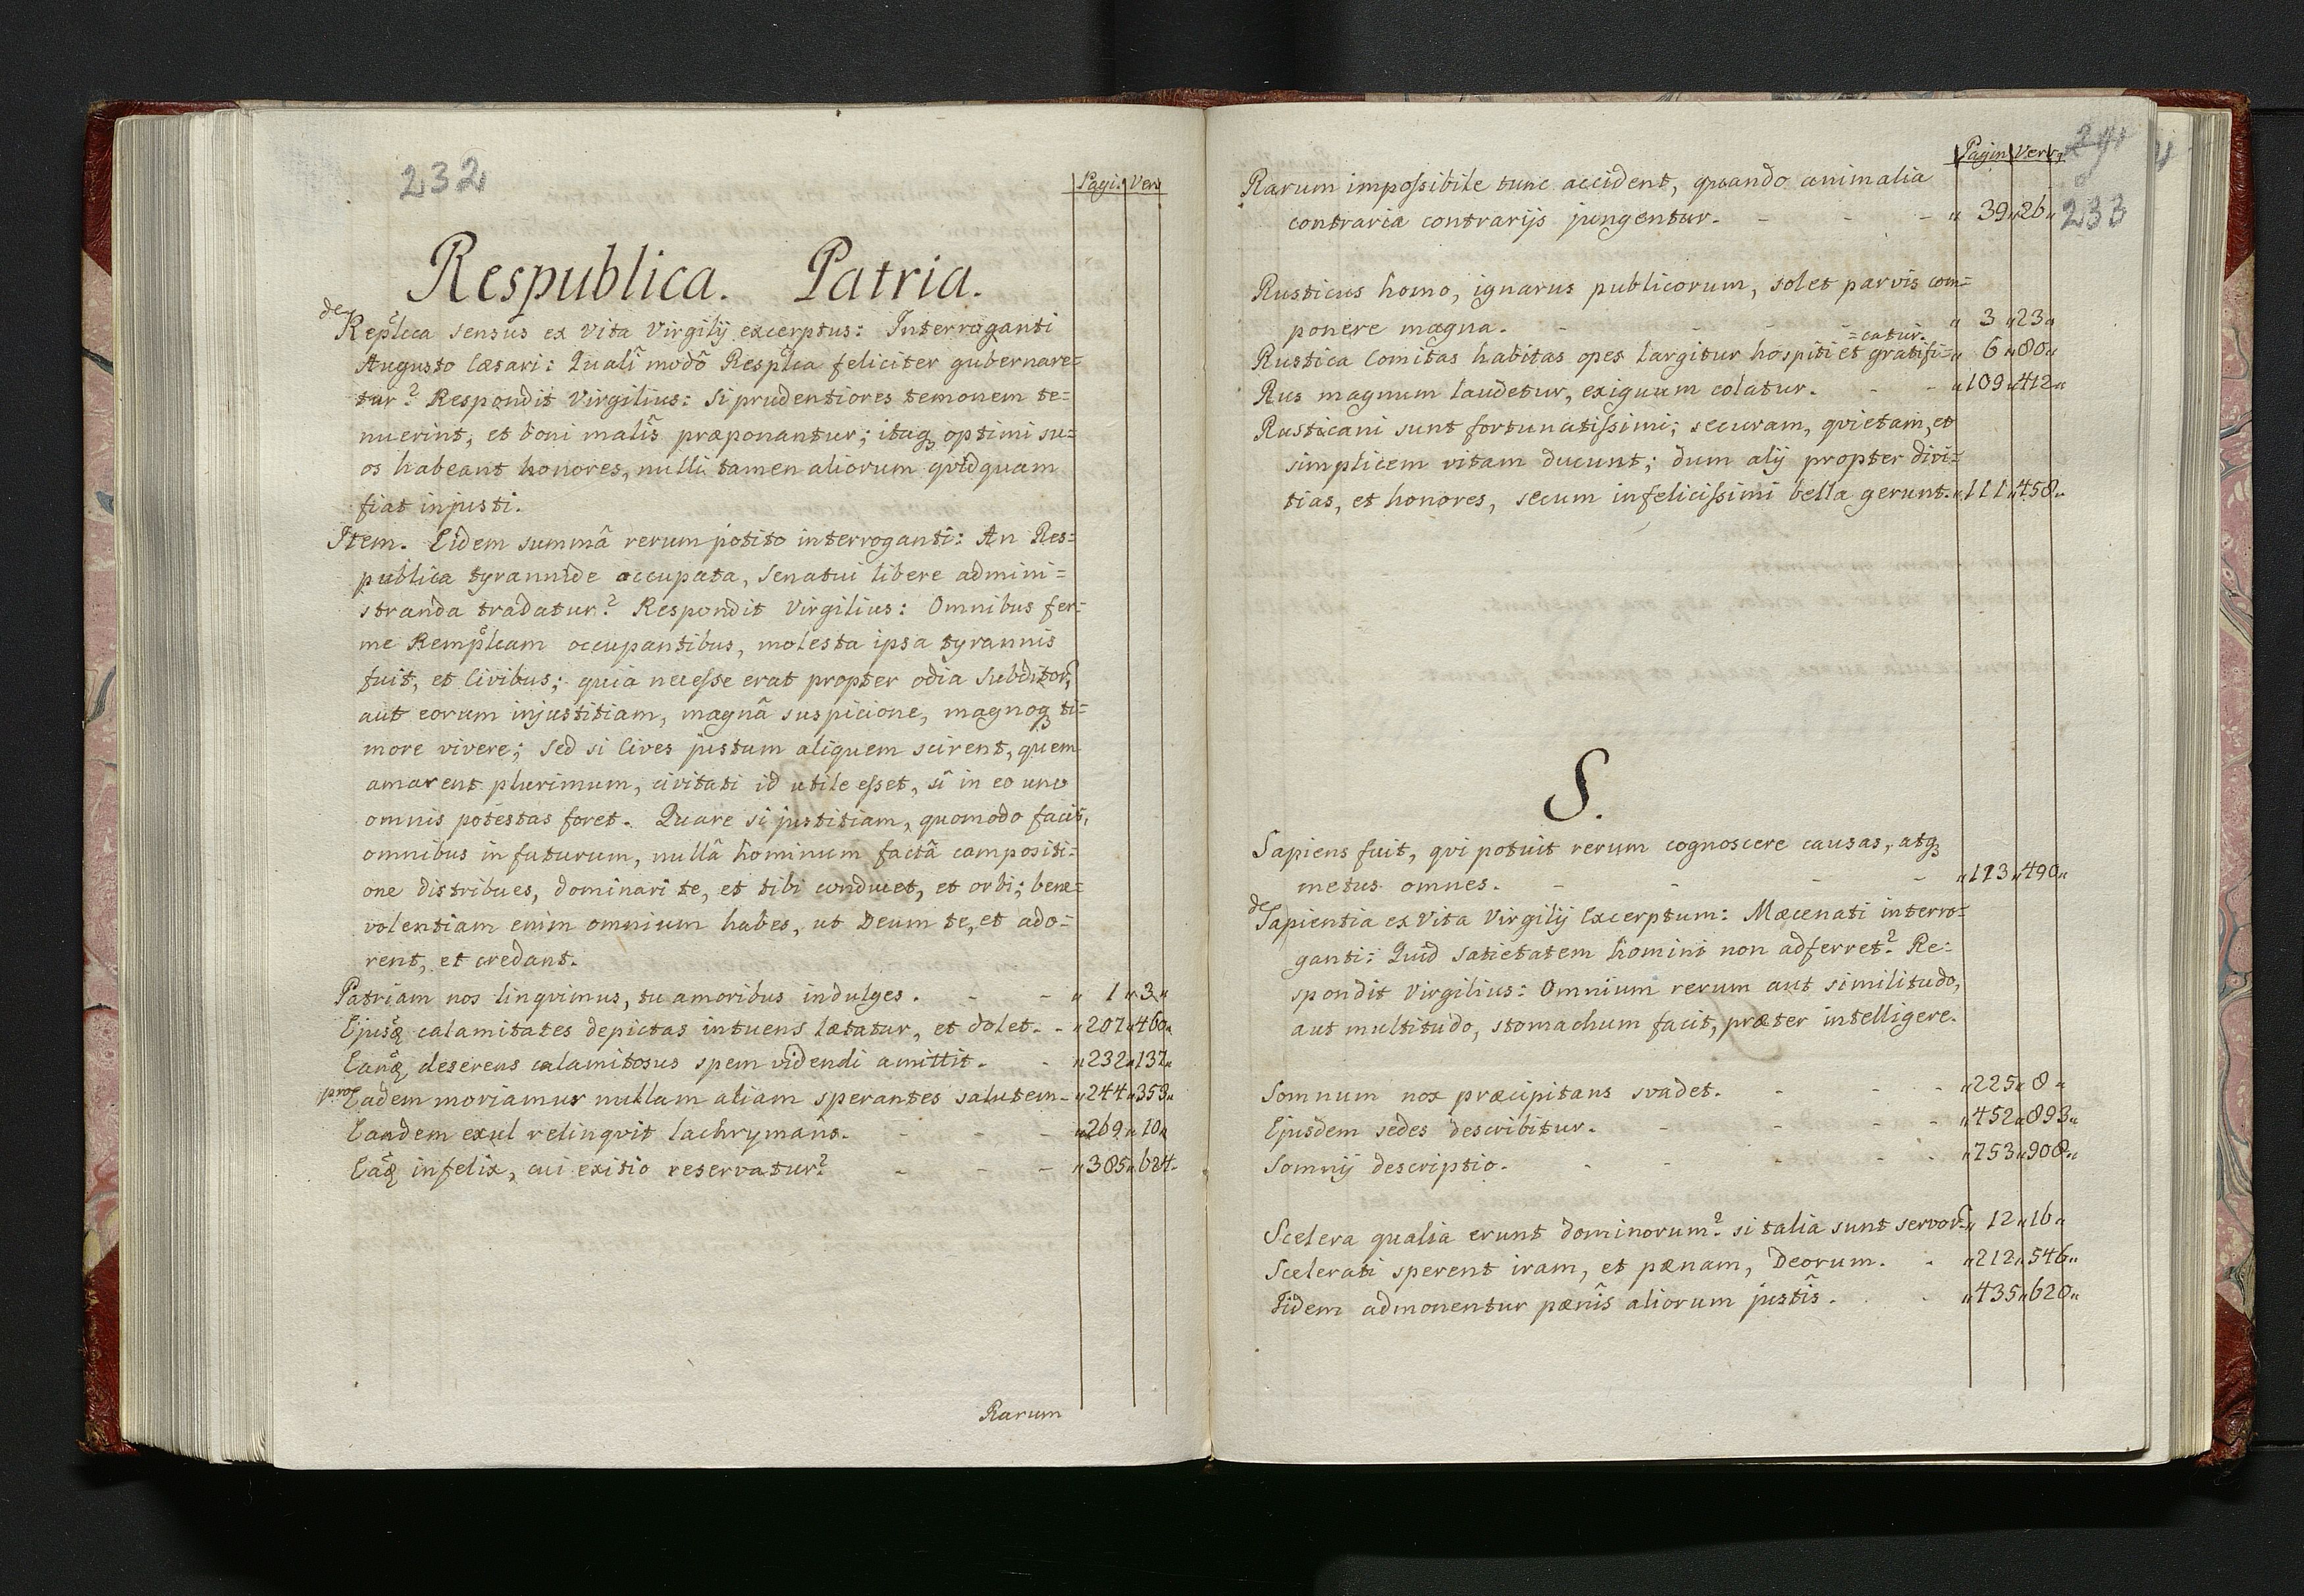 232
Pagi. Vers
Respublica. Patria.
de Replica sensus ex Vita Virgilij excerptus: Interroganti
Augusto Cæsari: Quali modô Resplca feliciter gubernare=
tur? Respondit Virgilius: Si prudentiores temonem te=
nuerint, et boni malîs præponantur; itaqꝫ optimi su=
os habeant honores, nulli tamen aliorum qvidquam
fiat injusti.
Item. Eidem summâ rerum potito interroganti: An Res=
publica tyrannide occupata, Senatui libere admini=
stranda tradatur? Respondit Virgilius: Omnibus fer=
me Remplcam occupantibus, molesta ipsa tyrannis
fuit, et Civibus; quia necesse erat propter odia Subditor,
aut eorum injustitiam, magnâ suspicione, magnoqꝫ ti=
more vivere; Sed si Cives justum aliquem scirent, quem
amarent plurimum, civitati id utile esset, si in eo uno
omnis potestas foret. Quare si justitiam, quomodo facis,
omnibus in futurum, nullâ hominum factâ compositi=
one distribues, dominari te, et tibi conducet, et orbi; bene=
volentiam enim omnium habes, ut Deum te, et ado=
rent, et credant.
Patriam nos linqvimus, tu amoribus indulges. - - " 1 " 3 "
Ejusqꝫ calamitates depictas intuens lætatur, et dolet. - " 207 " 460 "
Eanqꝫ deserens calamitosus spem videndi amittit. - " 232 " 137 "
pro Eadem moriamur nullam aliam sperantes salutem - " 244 " 353 "
Eandem exul relinqvit lachrymans. - - - " 269 " 10 "
Eâqꝫ infelix, cui exitio reservatur? - - - " 385 " 624 "
Rarum
Pagin Vers
291
233
Rarum impossibile tunc accident, quando animalia
contraria contrarijs jungentur. - - - " 39 " 26 "
Rusticus homo, ignarus publicorum, solet parvis com=
ponere magna. - - - " 3 " 23 "
=catur.
Rustica Comitas habitas opes largitur hospiti et gratifi= " 6 " 80 "
Rus magnum laudetur, exiguum colatur. - - " 109 " 412 "
Rusticani sunt fortunatissimi; securam, qvietam, et
simplicem vitam ducunt; dum alij propter divi=
tias, et honores, secum infelicissimi bella gerunt. " 111 " 458 "
S.
Sapiens fuit, qvi potuit rerum cognoscere causas, atqꝫ
metus omnes. - - - - " 113 " 490 "
de Sapientia ex Vita Virgilij Excerptum: Mæcenati interro=
ganti: Quid satietatem homini non adferret? Re=
spondit Virgilius: Omnium rerum aut similitudo,
aut multitudo, stomachum facit, præter intelligere.
Somnum nox præcipitans svadet. - - - " 225 " 8 "
Ejusdem sedes describitur. - - - - " 452 " 893 "
Somnij descriptio. - - - - " 753 " 908 "
Scelera qualia erunt dominorum? si talia sunt servor. " 12 " 16 "
Scelerati sperent iram, et pænam, Deorum. - " 212 " 546 "
Iidem admonentur pænîs aliorum justîs. - " 435 " 620 "